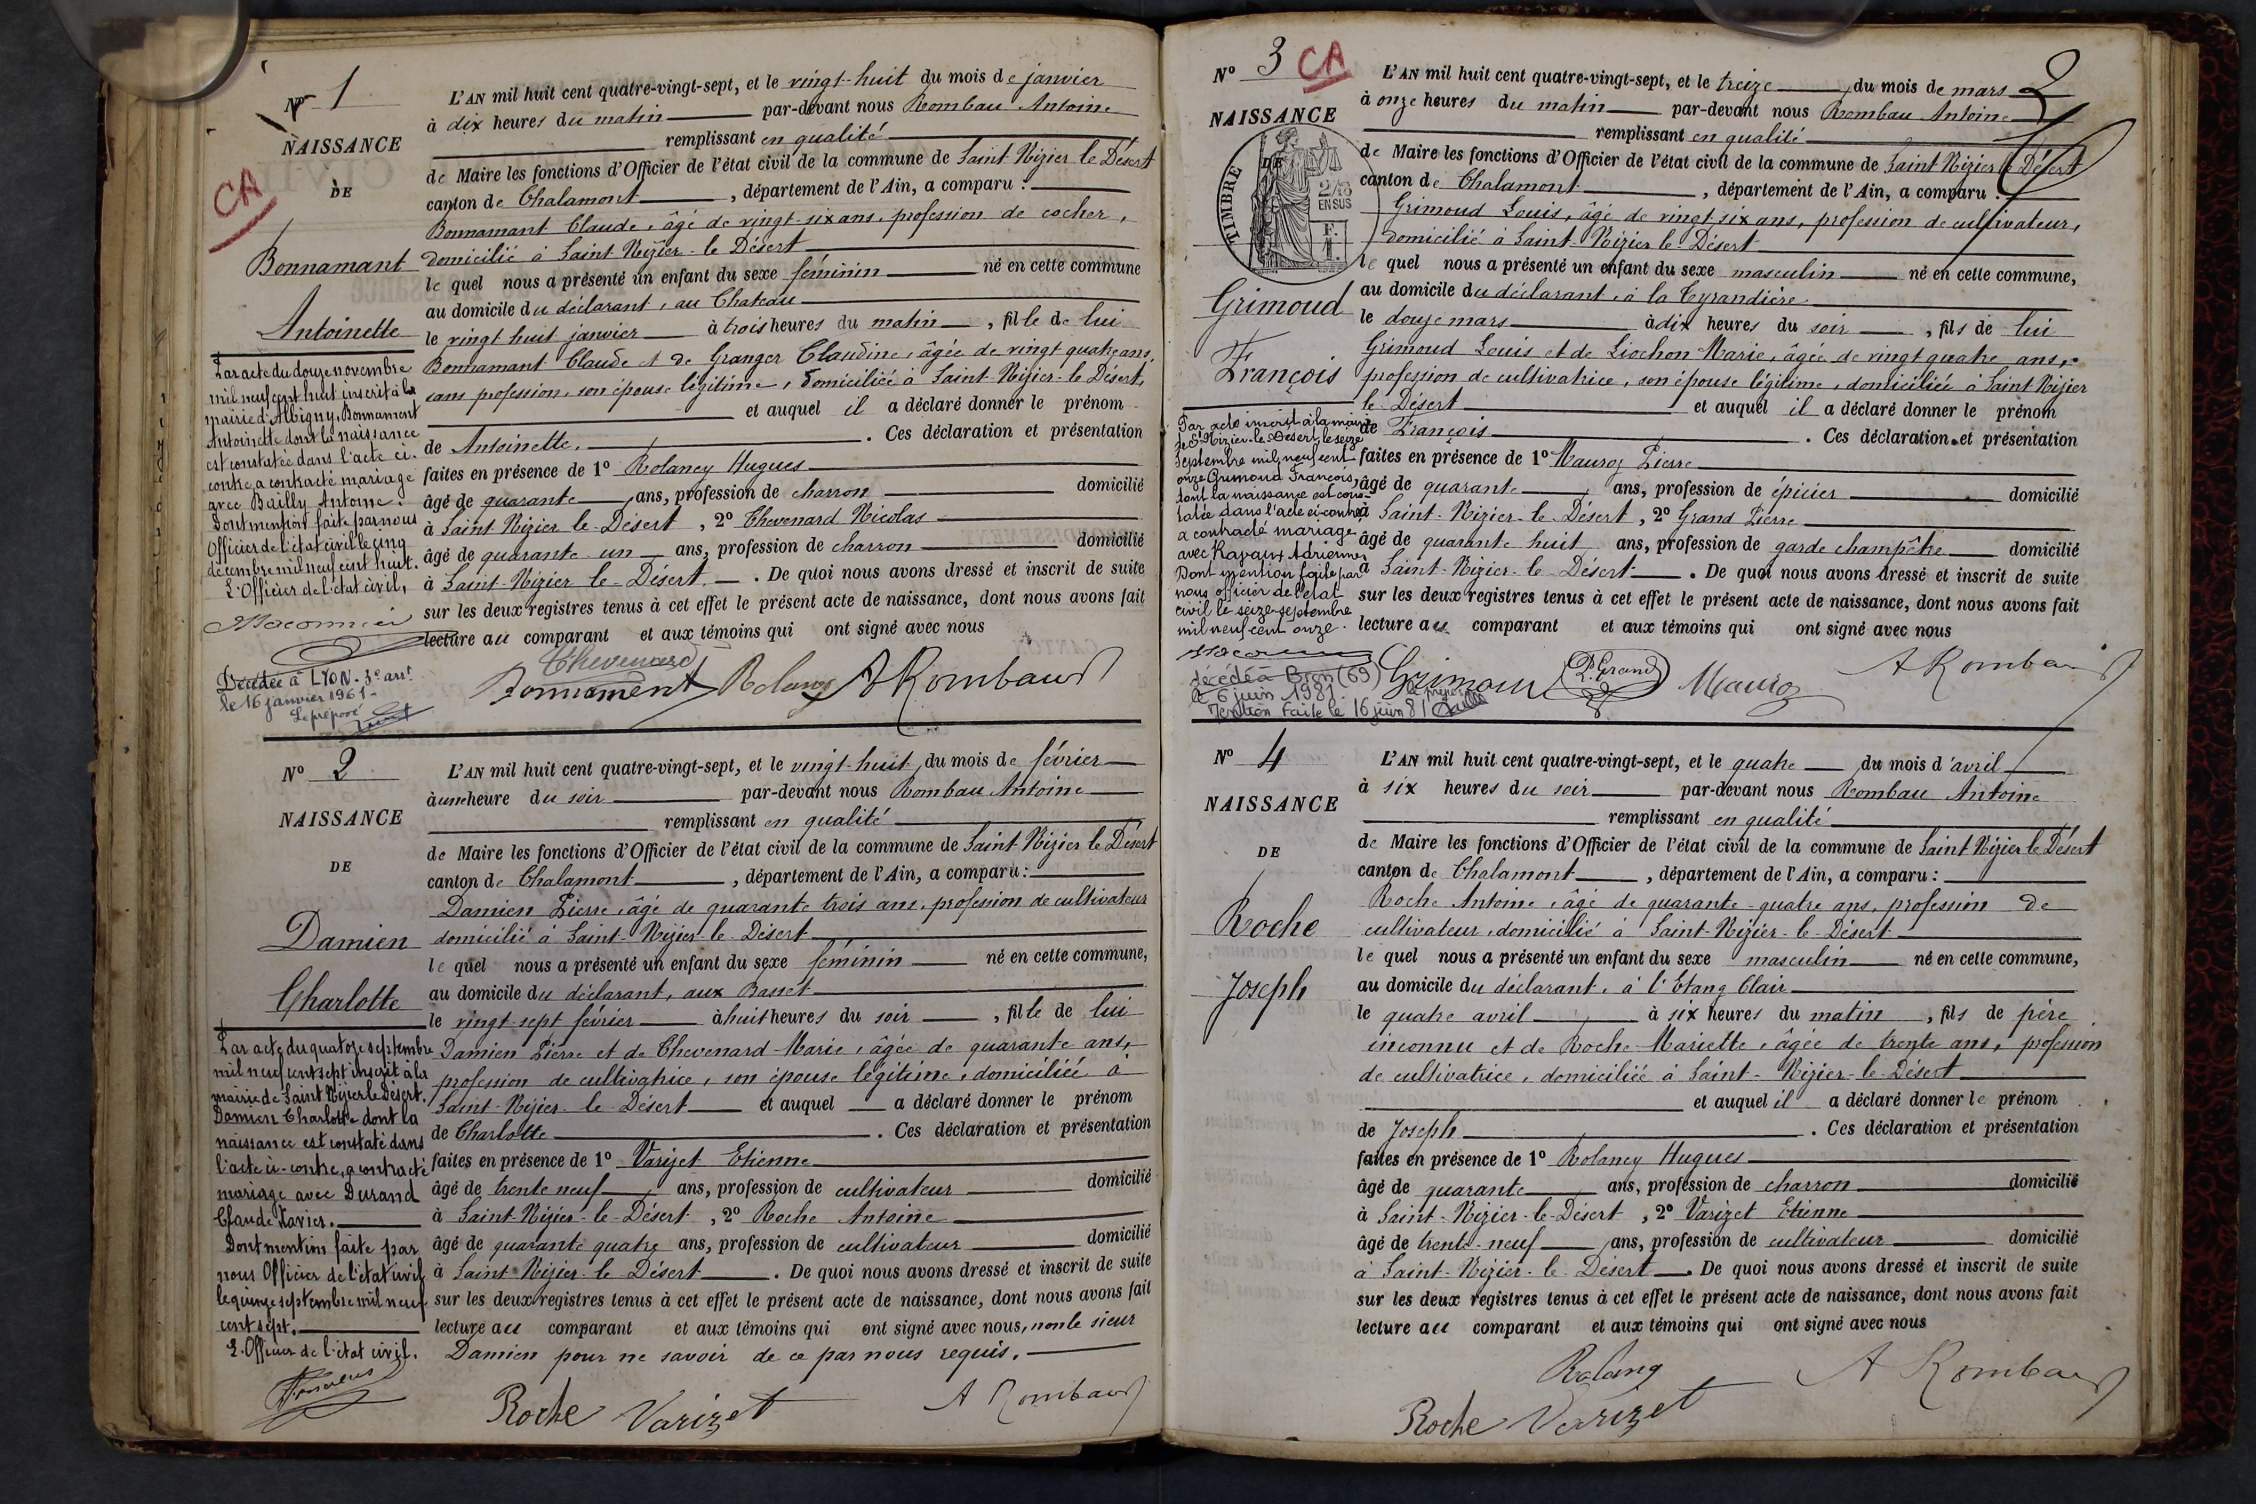 N° 1
NAISSANCE
DE
CA
Bonnamant
Antoinette
Par acte du douze novembre
mil neuf cent huit inscrit à la
mairie d'Albigny, Bonnamant
Antoinette dont la naissance
est constatée dans l'acte ci-
contre, a contracté mariage
avec Bailly Antoine.
Dont mention faite par nous
Officier de l'état civil le cinq
décembre mil neuf cent huit.
L'Officier de l'état civil,
Décédée à LYON - 3e arrt
le 16 janvier 1961 -
Le préposé
L'AN mil huit cent quatre-vingt-sept, et le vingt-huit du mois de janvier
à dix heures du matin par-devant nous Rombau Antoine
remplissant en qualité
de Maire les fonctions d'Officier de l'état civil de la commune de Saint Nizier le Désert
canton de Chalamont, département de l'Ain, a comparu :
Bonnamant Claude, âgé de vingt-six ans, profession de cocher,
domicilié à Saint Nizier-le Désert
le quel nous a présenté un enfant du sexe féminin né en cette commune
au domicile du déclarant, au Chateau
le vingt huit janvier à trois heures du matin, fille de lui
Bonnamant Claude et de Granger Claudine, âgée de vingt quatre ans,
sans profession, son épouse légitime, domiciliée à Saint-Nizier-le Désert,
et auquel il a déclaré donner le prénom
de Antoinette. Ces déclaration et présentation
faites en présence de 1° Rolancy Hugues
âgé de quarante ans, profession de charron domicilié
à Saint Nizier le Désert, 2° Chevenard Nicolas
âgé de quarante un ans, profession de charron domicilié
à Saint-Nizier le Désert. De quoi nous avons dressé et inscrit de suite
sur les deux registres tenus à cet effet le présent acte de naissance, dont nous avons fait
lecture au comparant et aux témoins qui ont signé avec nous
Chevenard
Bonnament Rolancy A Rombaud
N° 2
NAISSANCE
DE
Damien
Charlotte
Par acte du quatorze septembre
mil neuf cent sept inscrit à la
mairie de Saint Nizier le Désert,
Damien Charlotte dont la
naissance est constaté dans
l'acte ci-contre, a contracté
mariage avec Durand
Claude Xavier.
Dont mention faite par
nous Officier de l'état civil
le quinze septembre mil neuf
cent sept.
L'Officier de l'état civil.
L'AN mil huit cent quatre-vingt-sept, et le vingt-huit du mois de février
à une heure du soir par-devant nous Rombau Antoine
remplissant en qualité
de Maire les fonctions d'Officier de l'état civil de la commune de Saint Nizier le Désert
canton de Chalamont, département de l'Ain, a comparu :
Damien Pierre, âgé de quarante trois ans, profession de cultivateur
domicilié à Saint-Nizier-le-Désert
le quel nous a présenté un enfant du sexe féminin né en cette commune,
au domicile du déclarant, aux Basset
le vingt sept février à huit heures du soir, fille de lui
Damien Pierre et de Chevenard Marie, âgée de quarante ans,
profession de cultivatrice, son épouse légitime, domiciliée à
Saint-Nizier-le-Désert et auquel a déclaré donner le prénom
de Charlotte. Ces déclaration et présentation
faites en présence de 1° Varizet Etienne
âgé de trente neuf ans, profession de cultivateur domicilié
à Saint-Nizier-le-Désert, 2° Roche Antoine
âgé de quarante quatre ans, profession de cultivateur domicilié
à Saint-Nizier-le Désert. De quoi nous avons dressé et inscrit de suite
sur les deux registres tenus à cet effet le présent acte de naissance, dont nous avons fait
lecture au comparant et aux témoins qui ont signé avec nous, non le sieur
Damien pour ne savoir de ce par nous requis.
Roche Varizet A Rombaud
N° 3 CA
2
NAISSANCE
DE
TIMBRE
2/10
EN SUS
F.
1.
Grimoud
François
Par acte inscrit à la mairie
de St Nizier-le-Désert, le seize
Septembre mil neuf cent
onze Grimoud François,
dont la naissance est cons-
tatée dans l'acte ci-contre
a contracté mariage
avec Rapaux Adrienne,
Dont mention faite par
nous officier de l'état
civil le seize septembre
mil neuf cent onze.
décédé à Bron (69)
le 6 juin 1981
Mention faite le 16 juin 81
L'AN mil huit cent quatre-vingt-sept, et le treize du mois de mars
à onze heures du matin par-devant nous Rombau Antoine
remplissant en qualité
de Maire les fonctions d'Officier de l'état civil de la commune de Saint Nizier le Désert
canton de Chalamont, département de l'Ain, a comparu :
Grimoud Louis, âgé de vingt six ans, profession de cultivateur,
domicilié à Saint-Nizier le-Désert
le quel nous a présenté un enfant du sexe masculin né en cette commune,
au domicile du déclarant, à la Tyrandière
le douze mars à dix heures du soir, fils de lui
Grimoud Louis et de Liochon Marie, âgée de vingt quatre ans,
profession de cultivatrice, son épouse légitime, domiciliée à Saint Nizier
le-Désert et auquel il a déclaré donner le prénom
de François. Ces déclaration et présentation
faites en présence de 1° Mauroz Pierre
âgé de quarante ans, profession de épicier domicilié
à Saint-Nizier-le-Désert, 2° Grand Pierre
âgé de quarante huit ans, profession de garde champêtre domicilié
à Saint-Nizier-le-Désert. De quoi nous avons dressé et inscrit de suite
sur les deux registres tenus à cet effet le présent acte de naissance, dont nous avons fait
lecture au comparant et aux témoins qui ont signé avec nous
Grimoud P. Grand Mauroz A Rombaud
N° 4
NAISSANCE
DE
Roche
Joseph
L'AN mil huit cent quatre-vingt-sept, et le quatre du mois d'avril
à six heures du soir par-devant nous Rombau Antoine
remplissant en qualité
de Maire les fonctions d'Officier de l'état civil de la commune de Saint Nizier le Désert
canton de Chalamont, département de l'Ain, a comparu :
Roche Antoine, âgé de quarante-quatre ans, profession de
cultivateur, domicilié à Saint-Nizier-le-Désert
le quel nous a présenté un enfant du sexe masculin né en cette commune,
au domicile du déclarant, à l'Etang Clair
le quatre avril à six heures du matin, fils de père
inconnu et de Roche Mariette, âgée de trente ans, profession
de cultivatrice, domiciliée à Saint-Nizier-le-Désert
et auquel il a déclaré donner le prénom
de Joseph. Ces déclaration et présentation
faites en présence de 1° Rolancy Hugues
âgé de quarante ans, profession de charron domicilié
à Saint-Nizier-le-Désert, 2° Varizet Etienne
âgé de trente-neuf ans, profession de cultivateur domicilié
à Saint-Nizier-le-Désert. De quoi nous avons dressé et inscrit de suite
sur les deux registres tenus à cet effet le présent acte de naissance, dont nous avons fait
lecture au comparant et aux témoins qui ont signé avec nous
Rolancy A Rombaud
Roche Varizet